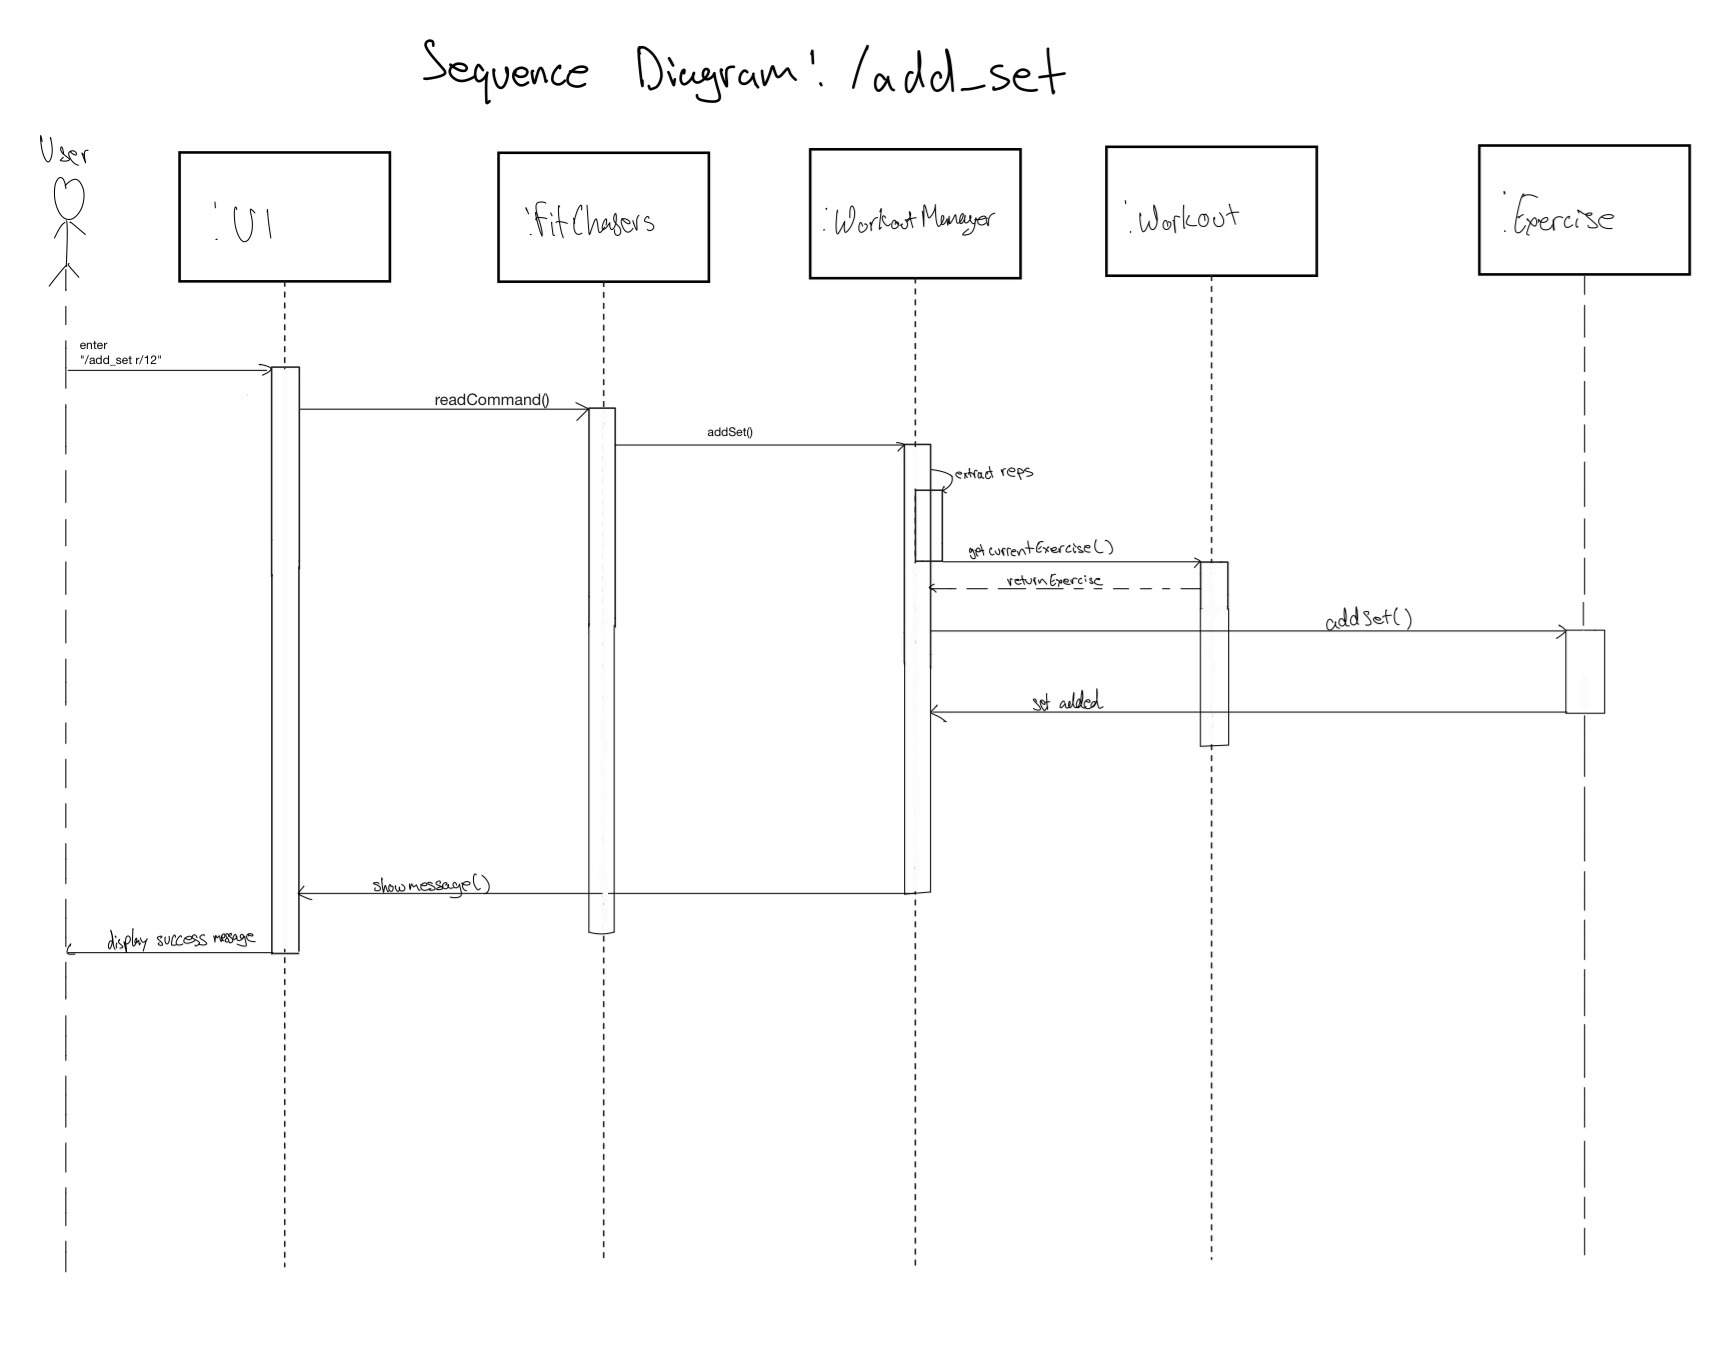 Sequence Diagram: /add_set
User
:UI
:FitChasers
:WorkoutManager
:Workout
:Exercise
enter
"/add_set r/12"
readCommand()
addSet()
extract reps
getcurrentExercise()
return Exercise
addSet()
set added
showmessage()
display success message